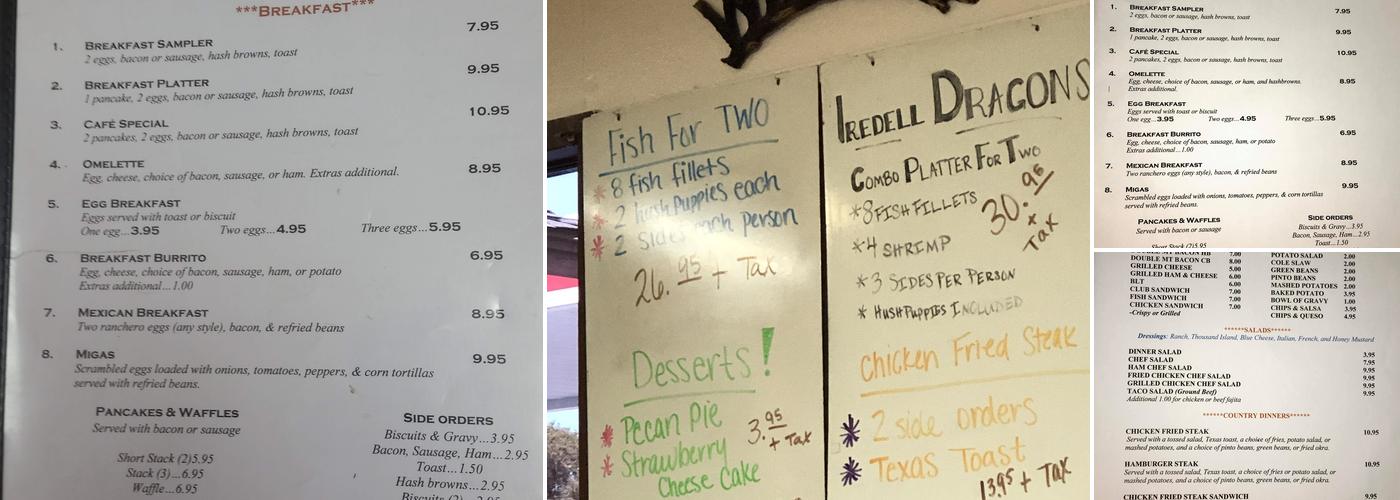 ***BREAKFAST***
7.95
1. BREAKFAST SAMPLER
2 eggs, bacon or sausage, hash browns, toast
9.95
2. BREAKFAST PLATTER
1 pancake, 2 eggs, bacon or sausage, hash browns, toast
10.95
3. CAFÉ SPECIAL
2 pancakes, 2 eggs, bacon or sausage, hash browns, toast
4. OMELETTE
Egg, cheese, choice of bacon, sausage, or ham. Extras additional. 8.95
5. EGG BREAKFAST
Eggs served with toast or biscuit
One egg...3.95 Two eggs...4.95 Three eggs...5.95
6. BREAKFAST BURRITO 6.95
Egg, cheese, choice of bacon, sausage, ham, or potato
Extras additional...1.00
7. MEXICAN BREAKFAST 8.95
Two ranchero eggs (any style), bacon, & refried beans
8. MIGAS 9.95
Scrambled eggs loaded with onions, tomatoes, peppers, & corn tortillas
served with refried beans.
PANCAKES & WAFFLES
Served with bacon or sausage
Short Stack (2)5.95
Stack (3)...6.95
Waffle...6.95
SIDE ORDERS
Biscuits & Gravy...3.95
Bacon, Sausage, Ham...2.95
Toast...1.50
Hash browns...2.95
Fish For TWO
* 8 fish fillets
* 2 hush Puppies each
* 2 sides each person
26.95 + Tax
Desserts!
* Pecan Pie
* Strawberry
Cheese Cake
3.95
+ Tax
IREDELL DRAGONS
COMBO PLATTER FOR TWO
* 8 FISH FILLETS
* 4 SHRIMP
* 3 SIDES PER PERSON
* HUSHPUPPIES INCLUDED
30.95
+
Tax
Chicken Fried Steak
* 2 side orders
* Texas Toast
13.95 + Tax
1. BREAKFAST SAMPLER 7.95
2 eggs, bacon or sausage, hash browns, toast
2. BREAKFAST PLATTER 9.95
1 pancake, 2 eggs, bacon or sausage, hash browns, toast
3. CAFÉ SPECIAL 10.95
2 pancakes, 2 eggs, bacon or sausage, hash browns, toast
4. OMELETTE
Egg, cheese, choice of bacon, sausage, or ham, and hashbrowns. 8.95
Extras additional.
5. EGG BREAKFAST
Eggs served with toast or biscuit
One egg...3.95 Two eggs...4.95 Three eggs...5.95
6. BREAKFAST BURRITO 6.95
Egg, cheese, choice of bacon, sausage, ham, or potato
Extras additional...1.00
7. MEXICAN BREAKFAST 8.95
Two ranchero eggs (any style), bacon, & refried beans
8. MIGAS 9.95
Scrambled eggs loaded with onions, tomatoes, peppers, & corn tortillas
served with refried beans.
PANCAKES & WAFFLES
Served with bacon or sausage
Short Stack (2)5.95
SIDE ORDERS
Biscuits & Gravy...3.95
Bacon, Sausage, Ham...2.95
Toast...1.50
DOUBLE MT BACON CB 8.00
GRILLED CHEESE 5.00
GRILLED HAM & CHEESE 6.00
BLT 6.00
CLUB SANDWICH 7.00
FISH SANDWICH 7.00
CHICKEN SANDWICH 7.00
-Crispy or Grilled
POTATO SALAD 2.00
COLE SLAW 2.00
GREEN BEANS 2.00
PINTO BEANS 2.00
MASHED POTATOES 2.00
BAKED POTATO 3.95
BOWL OF GRAVY 1.00
CHIPS & SALSA 3.95
CHIPS & QUESO 4.95
******SALADS******
Dressings: Ranch, Thousand Island, Blue Cheese, Italian, French, and Honey Mustard
DINNER SALAD 3.95
CHEF SALAD 7.95
HAM CHEF SALAD 9.95
FRIED CHICKEN CHEF SALAD 9.95
GRILLED CHICKEN CHEF SALAD 9.95
TACO SALAD (Ground Beef) 9.95
Additional 1.00 for chicken or beef fajita
******COUNTRY DINNERS******
CHICKEN FRIED STEAK 10.95
Served with a tossed salad, Texas toast, a choice of fries, potato salad, or
mashed potatoes, and a choice of pinto beans, green beans, or fried okra.
HAMBURGER STEAK 10.95
Served with a tossed salad, Texas toast, a choice of fries or potato salad, or
mashed potatoes, and a choice of pinto beans, green beans, or fried okra.
CHICKEN FRIED STEAK SANDWICH 9.95